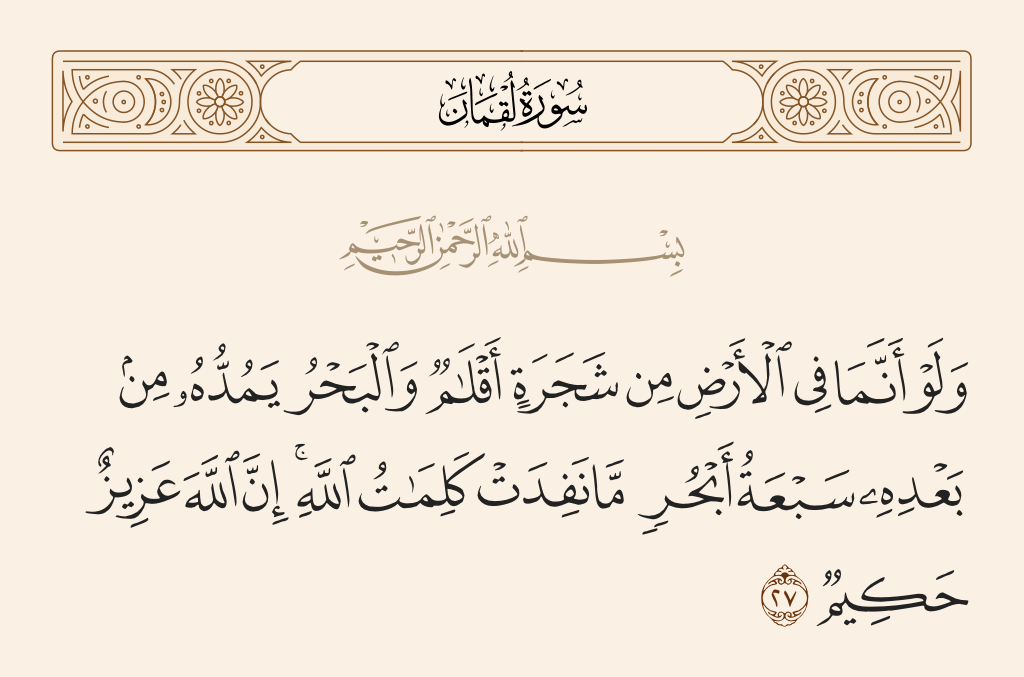 سُورَةُ لُقْمَانَ
بِسْمِ ٱللَّهِ ٱلرَّحْمَٰنِ ٱلرَّحِيمِ
وَلَوْ أَنَّمَا فِى ٱلْأَرْضِ مِن شَجَرَةٍ أَقْلَٰمٌ وَٱلْبَحْرُ يَمُدُّهُۥ مِنۢ
بَعْدِهِۦ سَبْعَةُ أَبْحُرٍ مَّا نَفِدَتْ كَلِمَٰتُ ٱللَّهِ ۗ إِنَّ ٱللَّهَ عَزِيزٌ
حَكِيمٌ ٢٧